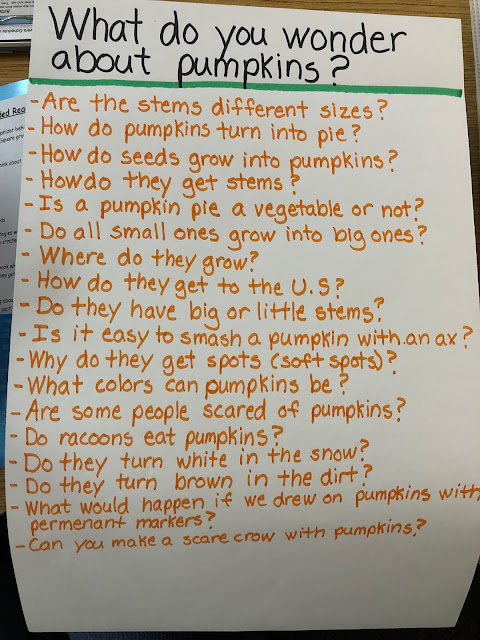 What do you wonder
about pumpkins?
-Are the stems different sizes?
-How do pumpkins turn into pie?
-How do seeds grow into pumpkins?
-How do they get stems?
-Is a pumpkin pie a vegetable or not?
-Do all small ones grow into big ones?
-Where do they grow?
-How do they get to the U.S?
-Do they have big or little stems?
-Is it easy to smash a pumpkin with an ax?
-Why do they get spots (soft spots)?
-What colors can pumpkins be?
-Are some people scared of pumpkins?
-Do racoons eat pumpkins?
-Do they turn white in the snow?
-Do they turn brown in the dirt?
-What would happen if we drew on pumpkins with
permenant markers?
-Can you make a scare crow with pumpkins?